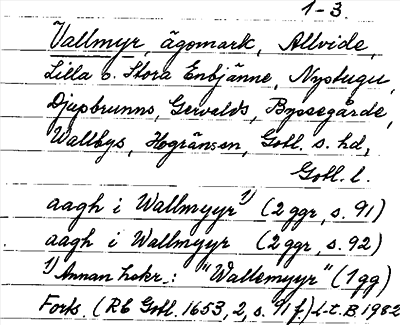 1-3.
Vallmyr, ägomark, Allvide,
Lilla o. Stora Enbjänne, Nystugu,
Djupbrunns, Gervalds, Byssegårde,
Wallbys, Hogränsen, Gotl. s. hd,
Gotl. l.
aagh i Wallmyyr 1) (2 ggr, s. 91)
aagh i Wallmyyr (2 ggr, s. 92)
1) Annan hskr.: "Wallemyyr" (1 gg)
Forts. (Rb Gotl. 1653, 2, s. 91 f.) L-t. B 1982